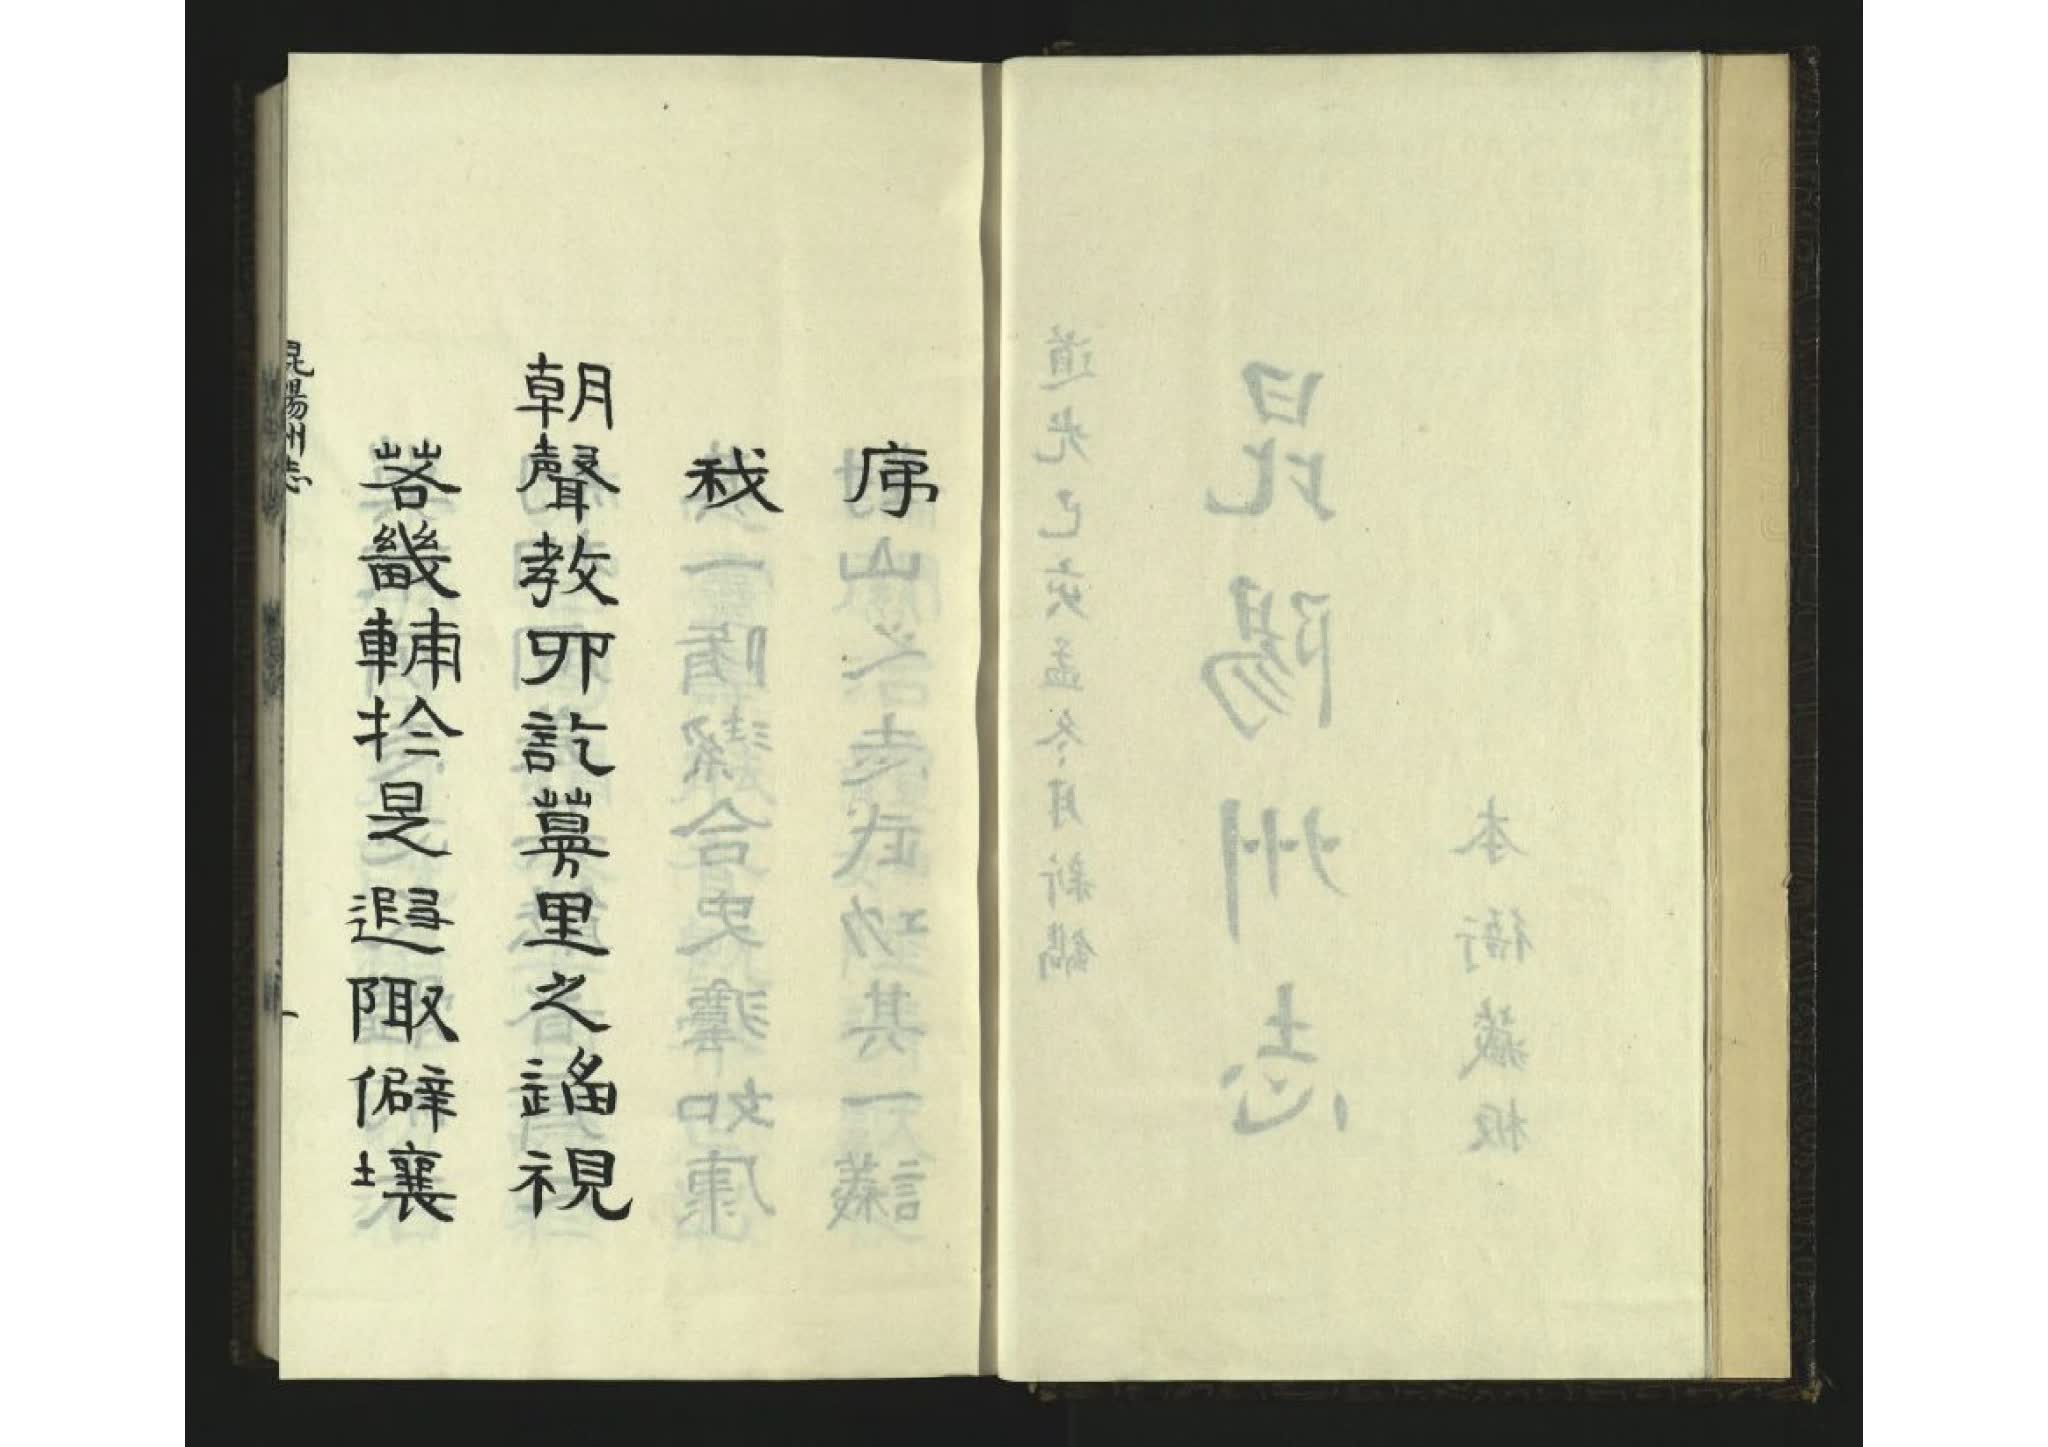 道光己亥孟冬月新鐫
昆陽州志
本衙藏板
序
我
朝聲教四訖萬里之遙視
若畿輔於是遐陬僻壤
昆陽州志
一